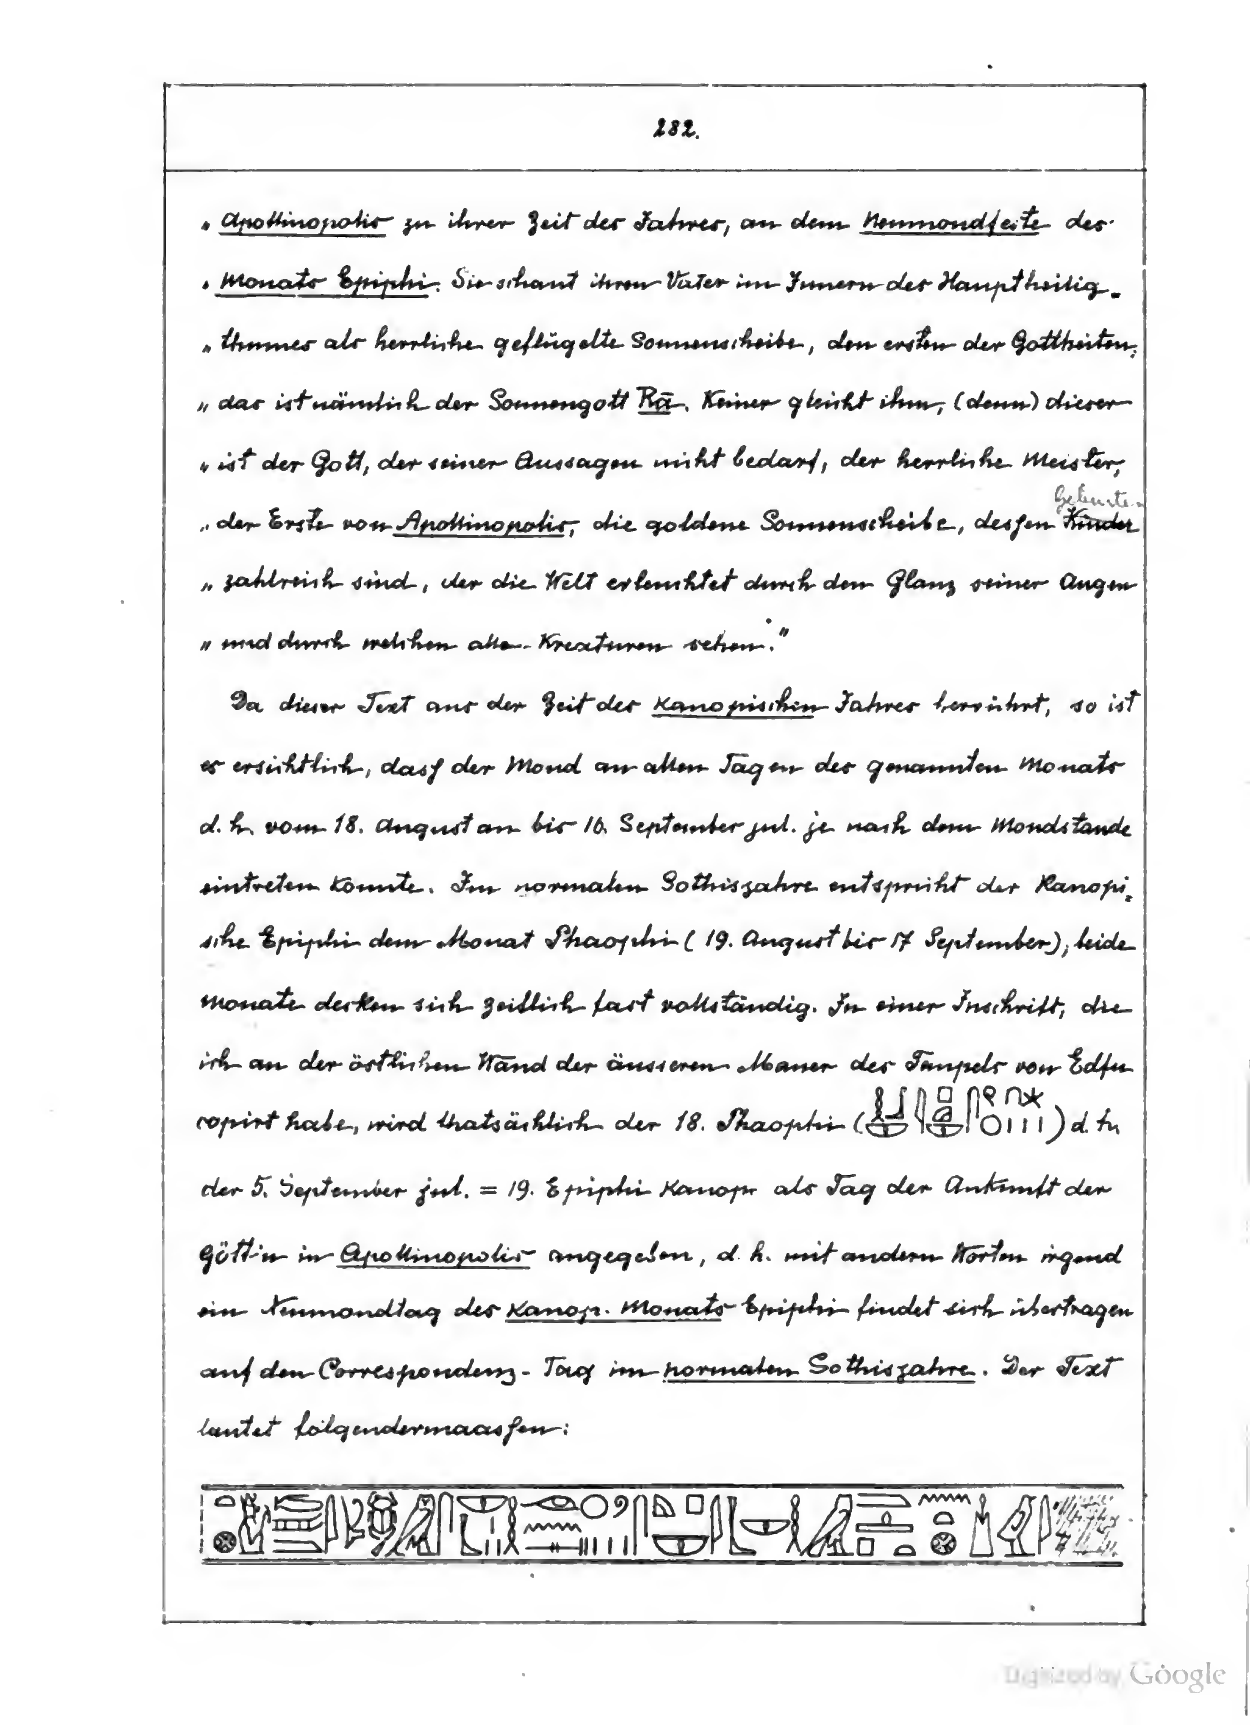 282.
„ Apollinopolis zu ihrer Zeit des Jahres, an dem Neumondfeste des
„ Monats Epiphi. Sie schaut ihren Vater im Innern des Hauptheilig-
„ thumes als herrliche geflügelte Sonnenscheibe, den ersten der Gottheiten,
„ das ist nämlich der Sonnengott Rā. Keiner gleicht ihm, (denn) dieser
„ ist der Gott, der seiner Aussagen nicht bedarf, der herrliche Meister,
„ der Erste von Apollinopolis, die goldene Sonnenscheibe, dessen Kinder
„ zahlreich sind, der die Welt erleuchtet durch den Glanz seiner Augen
„ und durch welchen alle Kreaturen sehen."
Da dieser Text aus der Zeit des Kanopischen Jahres herrührt, so ist
es ersichtlich, dass der Mond an allen Tagen des genannten Monats
d. h. vom 18. August an bis 16. September jul. je nach dem Mondstande
eintreten konnte. Im normalen Sothisjahre entspricht der Kanopi-
sche Epiphi dem Monat Phaophi (19. August bis 17 September), beide
Monate decken sich zeitlich fast vollständig. In einer Inschrift, die
ich an der östlichen Wand der äusseren Mauer des Tempels von Edfu
copirt habe, wird thatsächlich der 18. Phaophi ( ) d. h.
der 5. September jul. = 19. Epiphi Kanop. als Tag der Ankunft der
Göttin in Apollinopolis angegeben, d. h. mit andern Worten irgend
ein Neumondtag des Kanop. Monats Epiphi findet sich übertragen
auf den Correspondenz-Tag im normalen Sothisjahre. Der Text
lautet folgendermaassen:
Digitized by Google